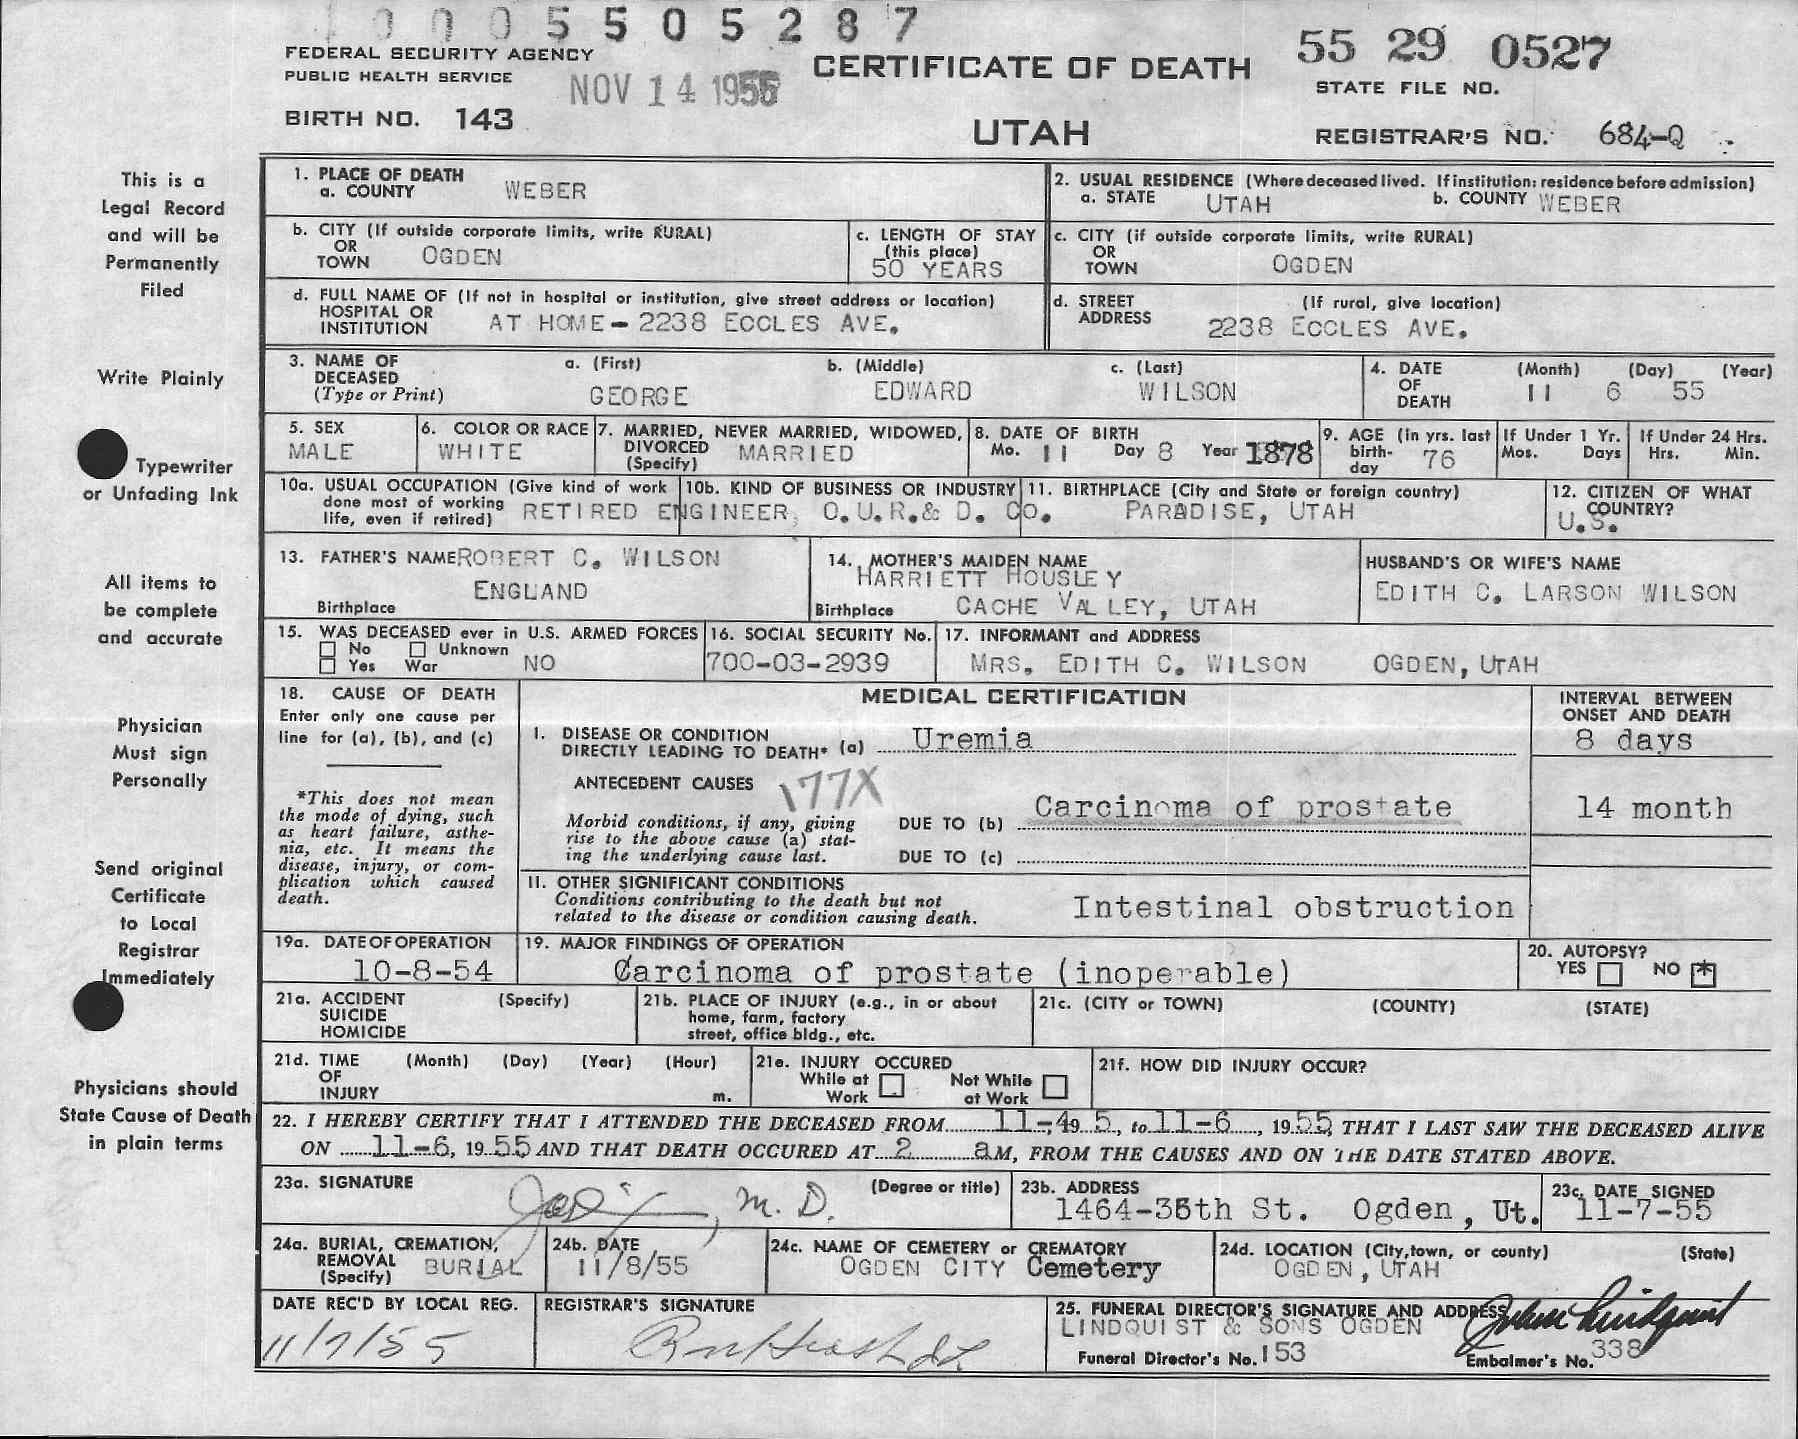 0005505287
FEDERAL SECURITY AGENCY
PUBLIC HEALTH SERVICE
NOV 14 1955
CERTIFICATE OF DEATH
55 29 0527
STATE FILE NO.
BIRTH NO. 143
UTAH
REGISTRAR'S NO. 684-Q
This is a
Legal Record
and will be
Permanently
Filed
Write Plainly
Typewriter
or Unfading Ink
All items to
be complete
and accurate
Physician
Must sign
Personally
Send original
Certificate
to Local
Registrar
Immediately
Physicians should
State Cause of Death
in plain terms
1. PLACE OF DEATH
a. COUNTY WEBER
2. USUAL RESIDENCE (Where deceased lived. If institution: residence before admission)
a. STATE UTAH b. COUNTY WEBER
b. CITY (If outside corporate limits, write RURAL)
OR
TOWN OGDEN
c. LENGTH OF STAY
(this place)
50 YEARS
c. CITY (if outside corporate limits, write RURAL)
OR
TOWN OGDEN
d. FULL NAME OF (If not in hospital or institution, give street address or location)
HOSPITAL OR
INSTITUTION AT HOME- 2238 ECCLES AVE.
d. STREET (If rural, give location)
ADDRESS 2238 ECCLES AVE.
3. NAME OF DECEASED
(Type or Print)
a. (First) b. (Middle) c. (Last)
GEORGE EDWARD WILSON
4. DATE OF DEATH (Month) (Day) (Year)
11 6 55
5. SEX
MALE
6. COLOR OR RACE
WHITE
7. MARRIED, NEVER MARRIED, WIDOWED,
DIVORCED (Specify) MARRIED
8. DATE OF BIRTH
Mo. 11 Day 8 Year 1878
9. AGE (In yrs. last
birth-
day 76
If Under 1 Yr.
Mos. Days
If Under 24 Hrs.
Hrs. Min.
10a. USUAL OCCUPATION (Give kind of work
done most of working
life, even if retired) RETIRED ENGINEER
10b. KIND OF BUSINESS OR INDUSTRY
O.U.R.& D. CO.
11. BIRTHPLACE (City and State or foreign country)
PARADISE, UTAH
12. CITIZEN OF WHAT
COUNTRY?
U.S.
13. FATHER'S NAME ROBERT C. WILSON
ENGLAND
Birthplace
14. MOTHER'S MAIDEN NAME
HARRIETT HOUSLEY
Birthplace CACHE VALLEY, UTAH
HUSBAND'S OR WIFE'S NAME
EDITH C. LARSON WILSON
15. WAS DECEASED ever in U.S. ARMED FORCES
No Unknown
Yes War NO
16. SOCIAL SECURITY No.
700-03-2939
17. INFORMANT and ADDRESS
MRS. EDITH C. WILSON OGDEN, UTAH
18. CAUSE OF DEATH
Enter only one cause per
line for (a), (b), and (c)
*This does not mean
the mode of dying, such
as heart failure, asthe-
nia, etc. It means the
disease, injury, or com-
plication which caused
death.
MEDICAL CERTIFICATION
INTERVAL BETWEEN
ONSET AND DEATH
I. DISEASE OR CONDITION
DIRECTLY LEADING TO DEATH* (a) Uremia
8 days
ANTECEDENT CAUSES 177X
Morbid conditions, if any, giving
rise to the above cause (a) stat-
ing the underlying cause last.
DUE TO (b) Carcinoma of prostate
14 month
DUE TO (c)
II. OTHER SIGNIFICANT CONDITIONS
Conditions contributing to the death but not
related to the disease or condition causing death.
Intestinal obstruction
19a. DATE OF OPERATION
10-8-54
19. MAJOR FINDINGS OF OPERATION
Carcinoma of prostate (inoperable)
20. AUTOPSY?
YES NO *
21a. ACCIDENT (Specify)
SUICIDE
HOMICIDE
21b. PLACE OF INJURY (e.g., in or about
home, farm, factory
street, office bldg., etc.
21c. (CITY or TOWN) (COUNTY) (STATE)
21d. TIME (Month) (Day) (Year) (Hour)
OF
INJURY m.
21e. INJURY OCCURED
While at Work
Not While at Work
21f. HOW DID INJURY OCCUR?
22. I HEREBY CERTIFY THAT I ATTENDED THE DECEASED FROM 11-4, 19 5, to 11-6, 1955, THAT I LAST SAW THE DECEASED ALIVE
ON 11-6, 1955 AND THAT DEATH OCCURED AT 2 aM, FROM THE CAUSES AND ON THE DATE STATED ABOVE.
23a. SIGNATURE (Degree or title)
M.D.
23b. ADDRESS
Ogden, Ut.
23c. DATE SIGNED
11-7-55
24a. BURIAL, CREMATION,
REMOVAL
(Specify) BURIAL
24b. DATE
11/8/55
24c. NAME OF CEMETERY or CREMATORY
OGDEN CITY Cemetery
24d. LOCATION (City, town, or county) (State)
OGDEN, UTAH
DATE REC'D BY LOCAL REG.
11/7/55
REGISTRAR'S SIGNATURE
25. FUNERAL DIRECTOR'S SIGNATURE AND ADDRESS
LINDQUIST & SONS OGDEN
John Lindquist
Funeral Director's No. 153
Embalmer's No. 338